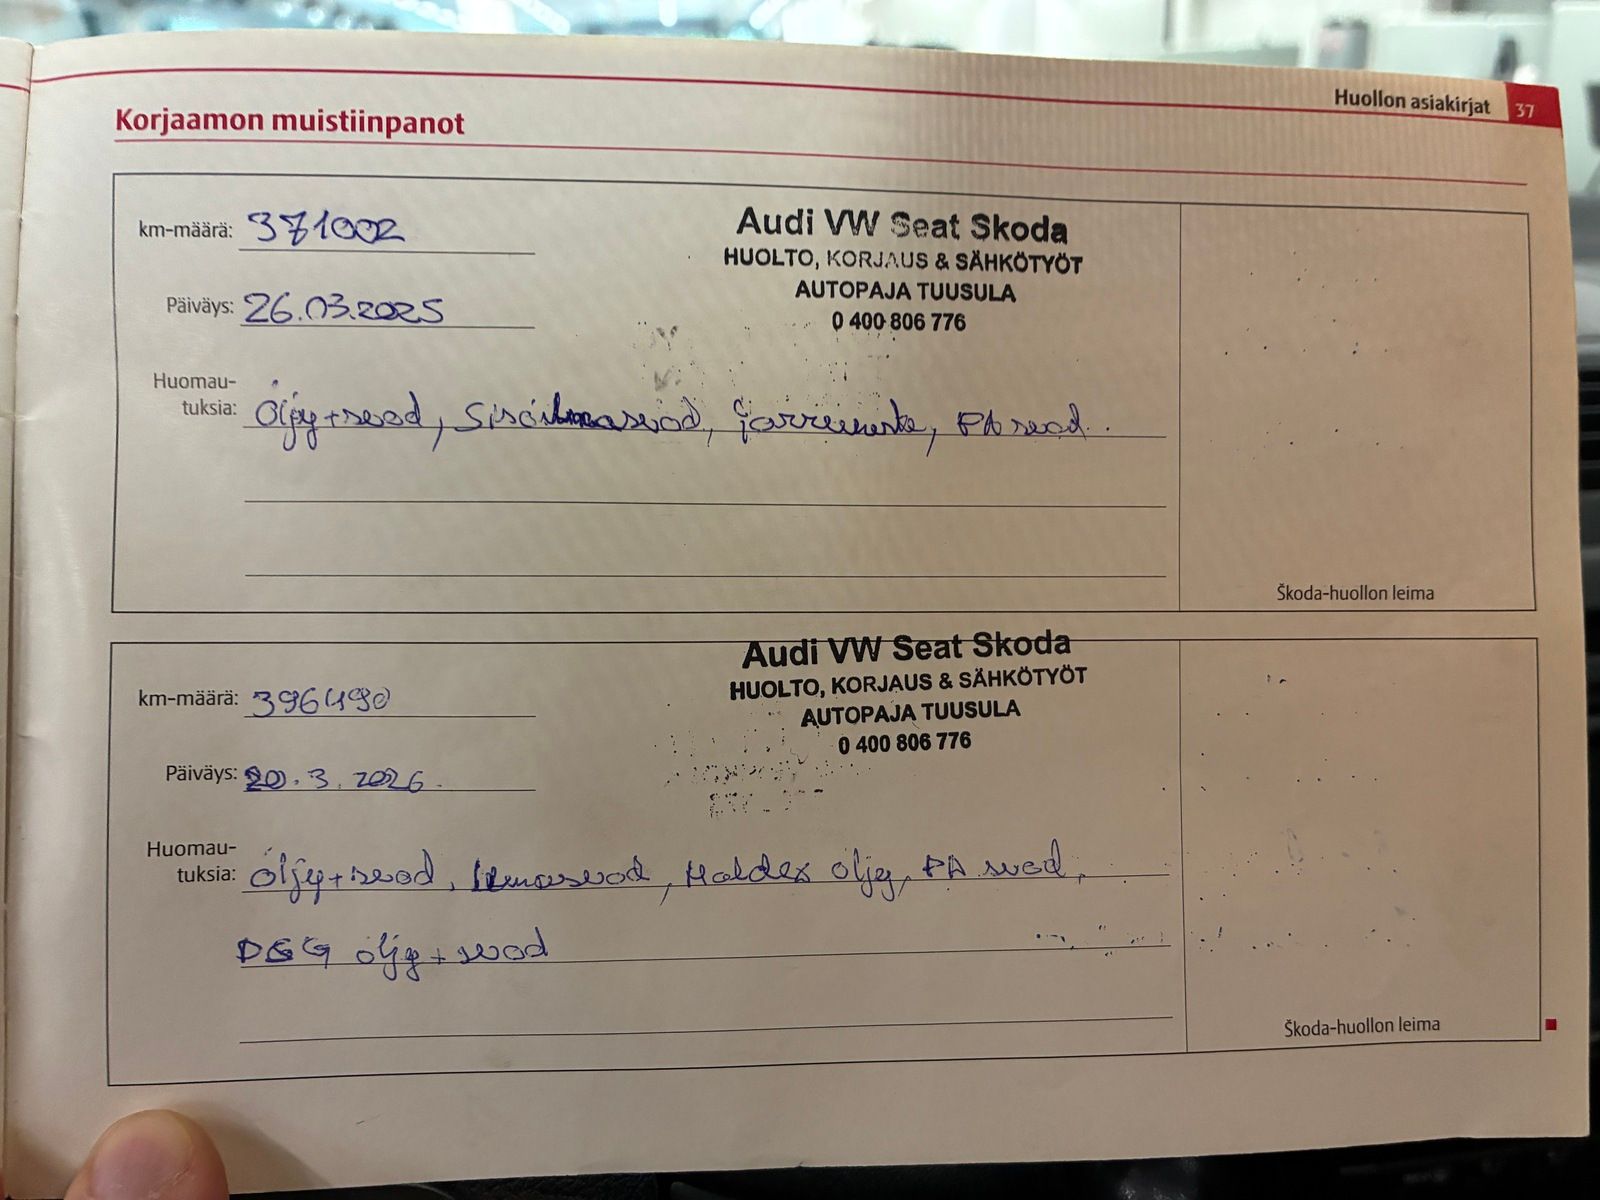 Huollon asiakirjat 37
Korjaamon muistiinpanot
km-määrä: 371002
Audi VW Seat Skoda
HUOLTO, KORJAUS & SÄHKÖTYÖT
AUTOPAJA TUUSULA
0 400 806 776
Päiväys: 26.03.2025
Huomau-
tuksia: Öljy+suod, Sisäilmasuod, jarruneste, PA suod.
Škoda-huollon leima
km-määrä: 396490
Audi VW Seat Skoda
HUOLTO, KORJAUS & SÄHKÖTYÖT
AUTOPAJA TUUSULA
0 400 806 776
Päiväys: 20.3.2026.
Huomau-
tuksia: Öljy+suod, Ilmasuod, Haldex öljy, PA suod,
DSG öljy+suod
Škoda-huollon leima